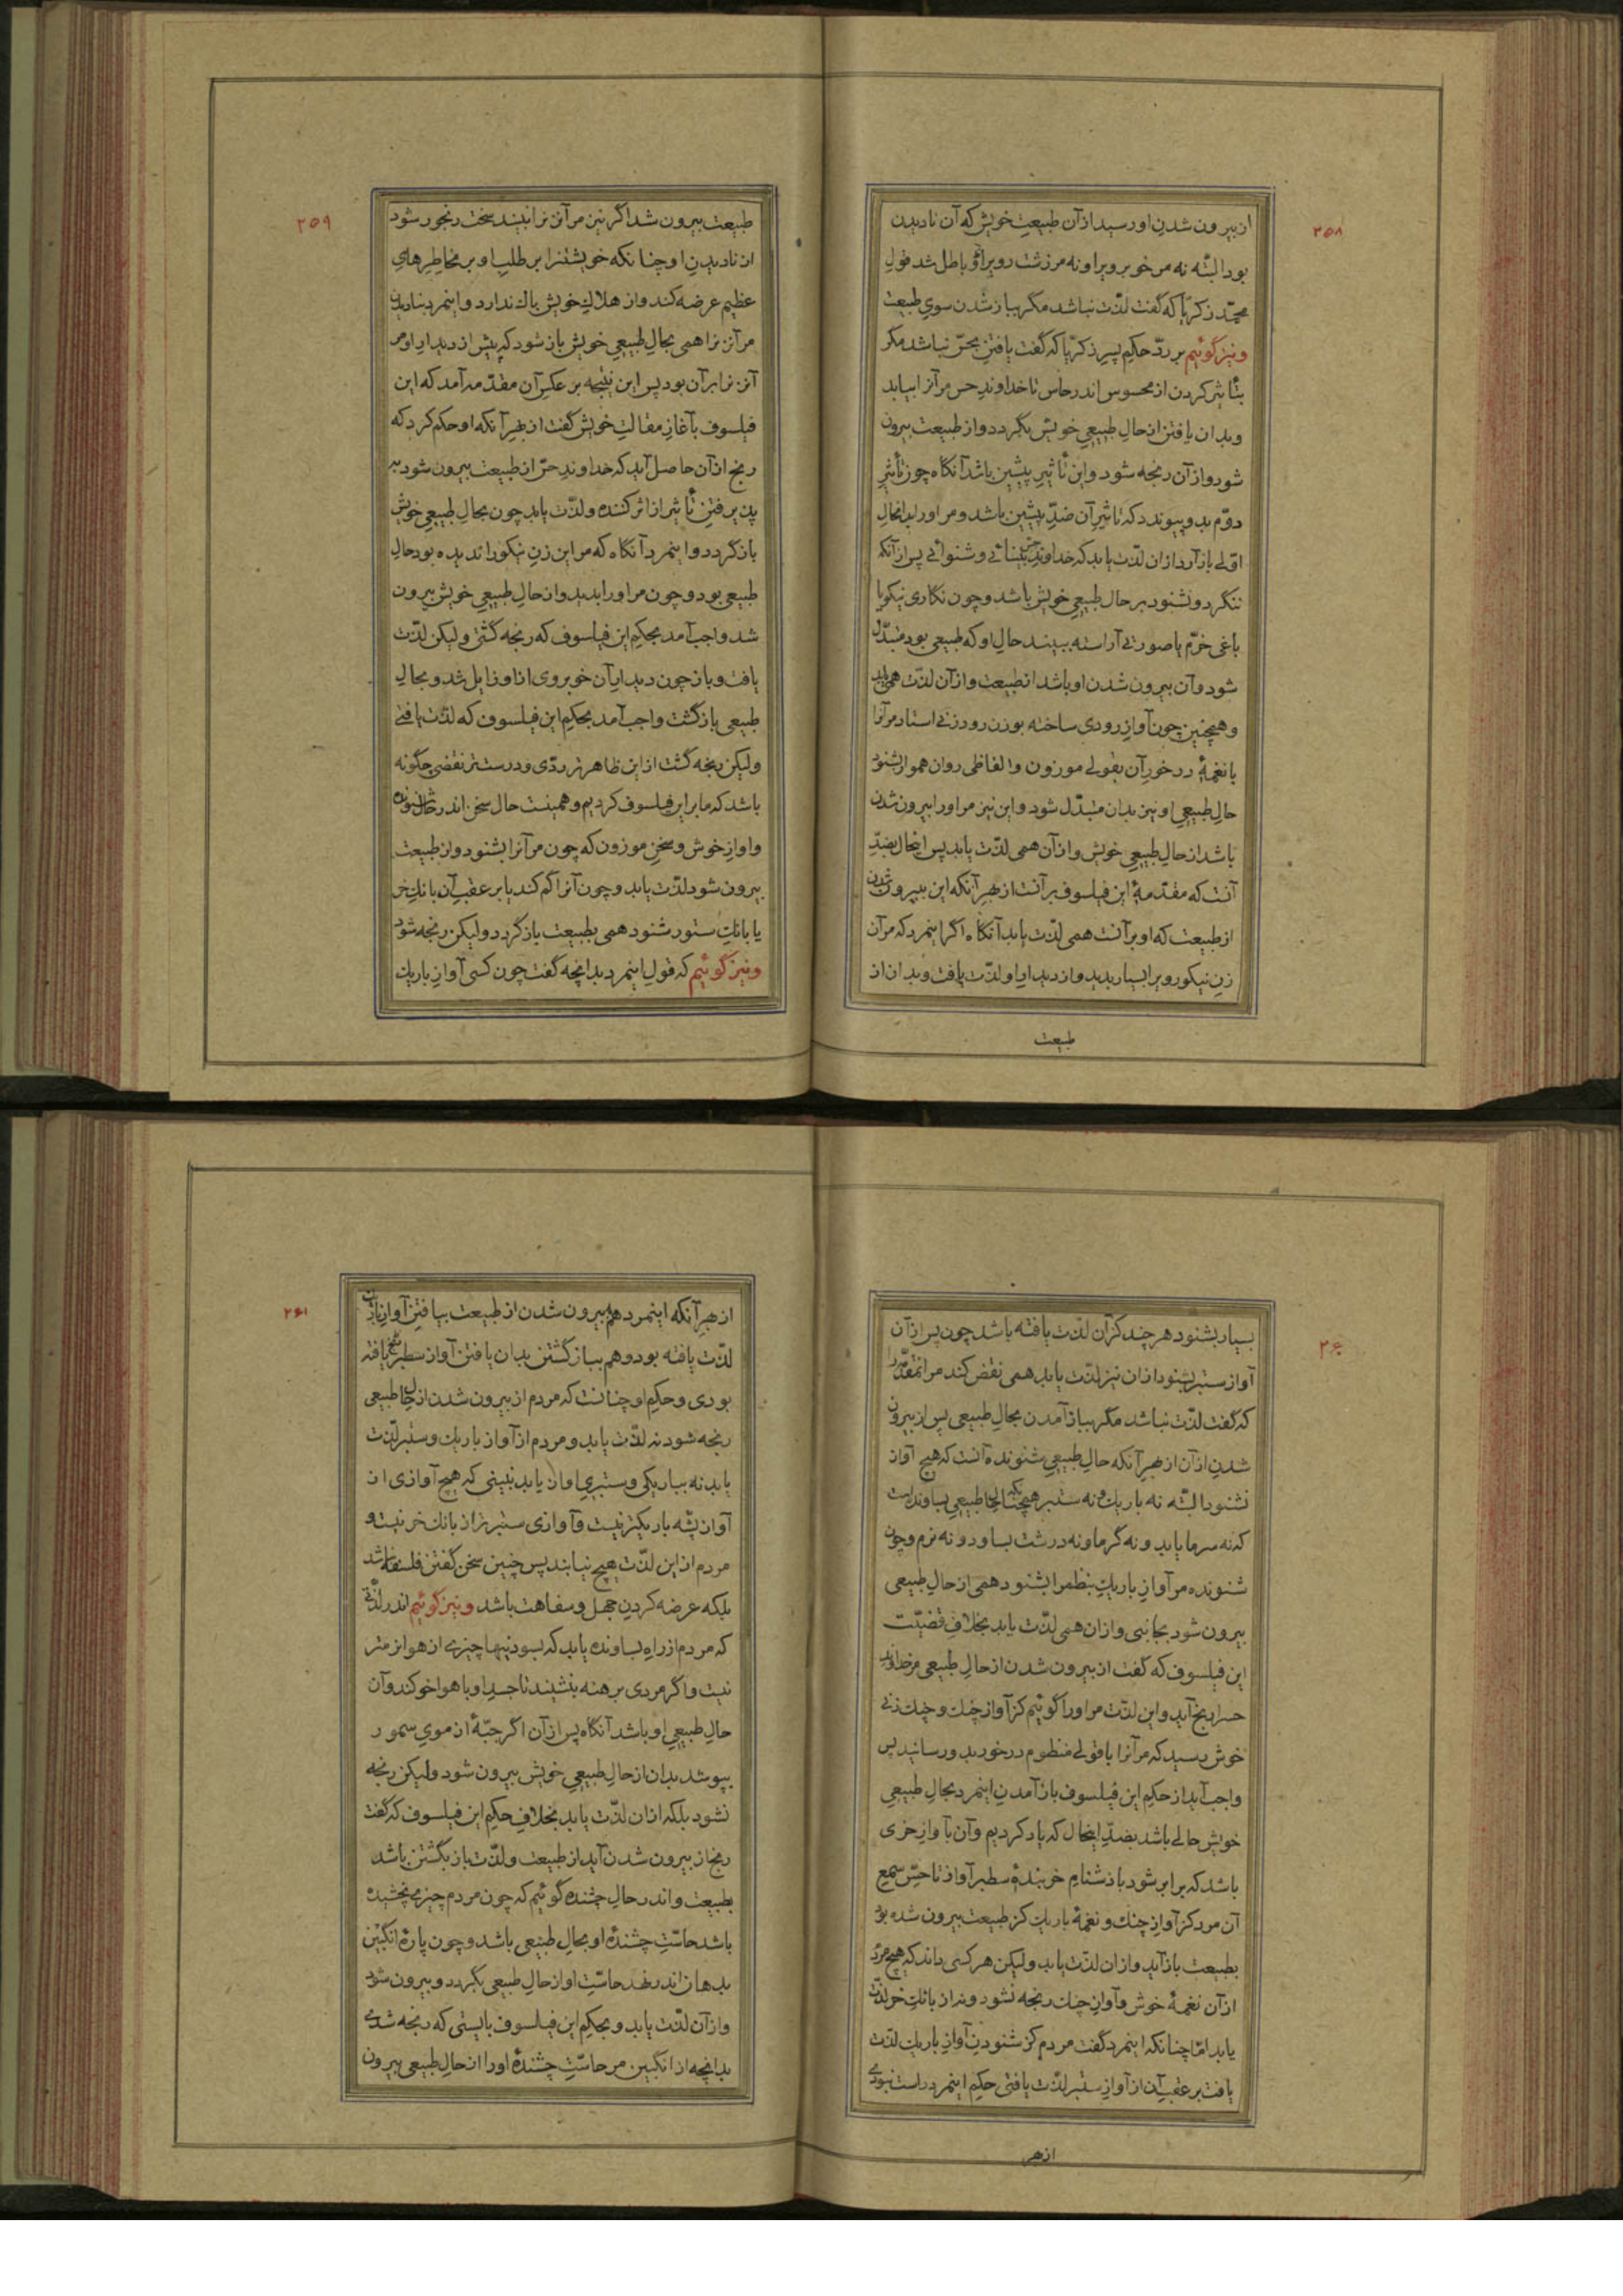 ۲۵۸
از بیرون شدن او رسید از آن طبیعت خویش که آن نادیدن
بود البتّه نه مر خوبرویرا و نه مر زشت رویرا و باطل شد قول
محمّد زکریّا که گفت لذّت نباشد مگر بباز شدن سوی طبیعت
و نیز گوئیم بر ردّ حکیم پسر زکریّا که گفت یافتن بحسّ نباشد مگر
بتأثیر کردن از محسوس اندر حاس تا خداوند حس مر آنرا بیابد
و بدان یافتن از حال طبیعی خویش بگردد و از طبیعت بیرون
شود و از آن رنجه شود و این تأثیر پیشین باشد آنگاه چون تأثیر
دوّم بدو پیوندد که تاثیر آن ضدّ پیشین باشد و مر او را بدانحال
اوّلی باز آرد از ان لذّت یابد که خداوند حسّ بینائی و شنوائی پس از آنکه
ننگرد و نشنود بر حال طبیعی خویش باشد و چون نگاری نیکو یا
باغی خرّم یا صورتی آراسته ببیند حال او که طبیعی بود متبدّل
شود و آن بیرون شدن او باشد از طبیعت و از آن لذّت همی یابد
و همچنین چون آواز رودی ساخته بوزن رود زنی استاد مر آنرا
با نغمهٔ درخور آن بقولی موزون و الفاظی روان هموار بشنود
حال طبیعی او نیز بدان متبدّل شود و این نیز مر او را بیرون شدن
باشد از حال طبیعی خویش و از آن همی لذّت یابد پس اینحال بضدّ
آنست که مقدّمهٔ این فیلسوف بر آنست از بهر آنکه این بیرون شدن
از طبیعت که او بر آنست همی لذّت یابد آنگاه اگر اینمرد که مر آن
زن نیکو رویرا بسیار بدید و از دیدار او لذّت یافت و بدان از
طبیعت
۲۵۹
طبیعت بیرون شد اگر نیز مر آنزنرا نبیند سخت رنجور شود
از نادیدن او چنانکه خویشتنرا بر طلب او بر مخاطرهای
عظیم عرضه کند و از هلاک خویش باک ندارد و اینمرد بنادیدن
مر آنزنرا همی بحال طبیعی خویش باز شود که پیش از دیدار او مر
آنزنرا بر آن بود پس این نتیجه بر عکس آن مقدّمه آمد که این
فیلسوف بآغاز مقالت خویش گفت از بهر آنکه او حکم کرد که
رنج از آن حاصل آید که خداوند حسّ از طبیعت بیرون شود به
پذیرفتن تأثیر از اثر کننده و لذّت یابد چون بحال طبیعی خویش
باز گردد و اینمرد آنگاه که مر این زن نیکو را ندیده بود حال
طبیعی بود و چون مر او را بدید و از حال طبیعی خویش بیرون
شد واجب آمد بحکم این فیلسوف که رنجه گشتی ولیکن لذّت
یافت و باز چون دیدار آن خوبروی از او زایل شد و بحال
طبیعی بازگشت واجب آمد بحکم این فیلسوف که لذّت یافتی
ولیکن رنجه گشت از این ظاهر تر ردّی و درست تر نقضی چگونه
باشد که ما بر این فیلسوف کردیم و همینست حال سخن اندر حال شنونده
و اواز خوش و سخن موزون که چون مر آنرا بشنود و از طبیعت
بیرون شود لذّت یابد و چون آنرا گم کند یا بر عقب آن بانک خر
یا بانک ستور شنود همی بطبیعت باز گردد ولیکن رنجه شود
و نیز گوئیم که قول اینمرد بدانچه گفت چون کسی آواز باریک
۲۶۰
بسیار بشنود هر چند کز آن لذّت یافته باشد چون پس از آن
آواز ستبر بشنود از ان نیز لذّت یابد همی نقض کند مر انمقدّمه را
که گفت لذّت نباشد مگر بباز آمدن بحال طبیعی پس از بیرون
شدن از آن از بهر آنکه حال طبیعی شنونده آنست که هیچ آواز
نشنود البتّه نه باریک و نه ستبر همچنانکه حال طبیعی بساونده آنست
که نه سرما یابد و نه گرما و نه درشت بساود و نه نرم و چون
شنونده مر آواز باریک بنظم را بشنود همی از حال طبیعی
بیرون شود بجانبی و از ان همی لذّت یابد بخلاف قضیّت
این فیلسوف که گفت از بیرون شدن از حال طبیعی مر خداوند
حس را رنج آید و این لذّت مر او را گوئیم کز آواز چنک و چنک زنی
خوش رسید که مر آنرا با قولی منظوم درخور بدو رسانید پس
واجب آید از حکم این فیلسوف باز آمدن اینمرد بحال طبیعی
خویش حالی باشد بضدّ اینحال که یاد کردیم و آن بآواز خری
باشد که برابر شود با دشنام خربندهٔ سطبر آواز تا حسّ سمع
آن مرد کز آواز چنک و نغمهٔ باریک کز طبیعت بیرون شده بود
بطبیعت باز آید و از ان لذّت یابد ولیکن هر کسی داند که هیچ مرد
از آن نغمهٔ خوش و آواز چنک رنجه نشود و نه از بانک خر لذّت
یابد امّا چنانکه اینمرد گفت مردم کز شنودن آواز باریک لذّت
یافت بر عقب آن از آواز ستبر لذّت یافتی حکم اینمرد راست نبودی
از بهر
۲۶۱
از بهر آنکه اینمرد هم به بیرون شدن از طبیعت بیافتن آواز باریک
لذّت یافته بود و هم بباز گشتن بدان یافتن آواز سطبر رنج یافته
بودی و حکم او چنانست که مردم از بیرون شدن از حال طبیعی
رنجه شود نه لذّت یابد و مردم از آواز باریک و ستبر لذّت
یابد نه بباریکی و ستبری اواز یابد نبینی که هیچ آوازی از
آواز پشّه باریکتر نیست و آوازی ستبرتر از بانک خر نیست و
مردم از این لذّت هیچ نیابند پس چنین سخن گفتن فلسفه نباشد
بلکه عرضه کردن جهل و سفاهت باشد و نیز گوئیم اندر لذّتی
که مردم از راه بساونده یابد که بسودنیها چیزی از هوا نرمتر
نیست و اگر مردی برهنه بنشیند تا جسد او با هوا خو کند و آن
حال طبیعی او باشد آنگاه پس از آن اگر جبّهٔ از موی سمور
بپوشد بدان از حال طبیعی خویش بیرون شود ولیکن رنجه
نشود بلکه از ان لذّت یابد بخلاف حکم این فیلسوف که گفت
رنج از بیرون شدن آید از طبیعت و لذّت باز بگشتن باشد
بطبیعت و اندر حال چشنده گوئیم که چون مردم چیزی نچشیده
باشد حاسّت چشندهٔ او بحال طبیعی باشد و چون پارهٔ انگبین
بدهان اندر نهد حاسّت او از حال طبیعی بگردد و بیرون شود
و از آن لذّت یابد و بحکم این فیلسوف بایستی که رنجه شدی
بدانچه از انگبین مر حاسّت چشندهٔ او را از حال طبیعی بیرون